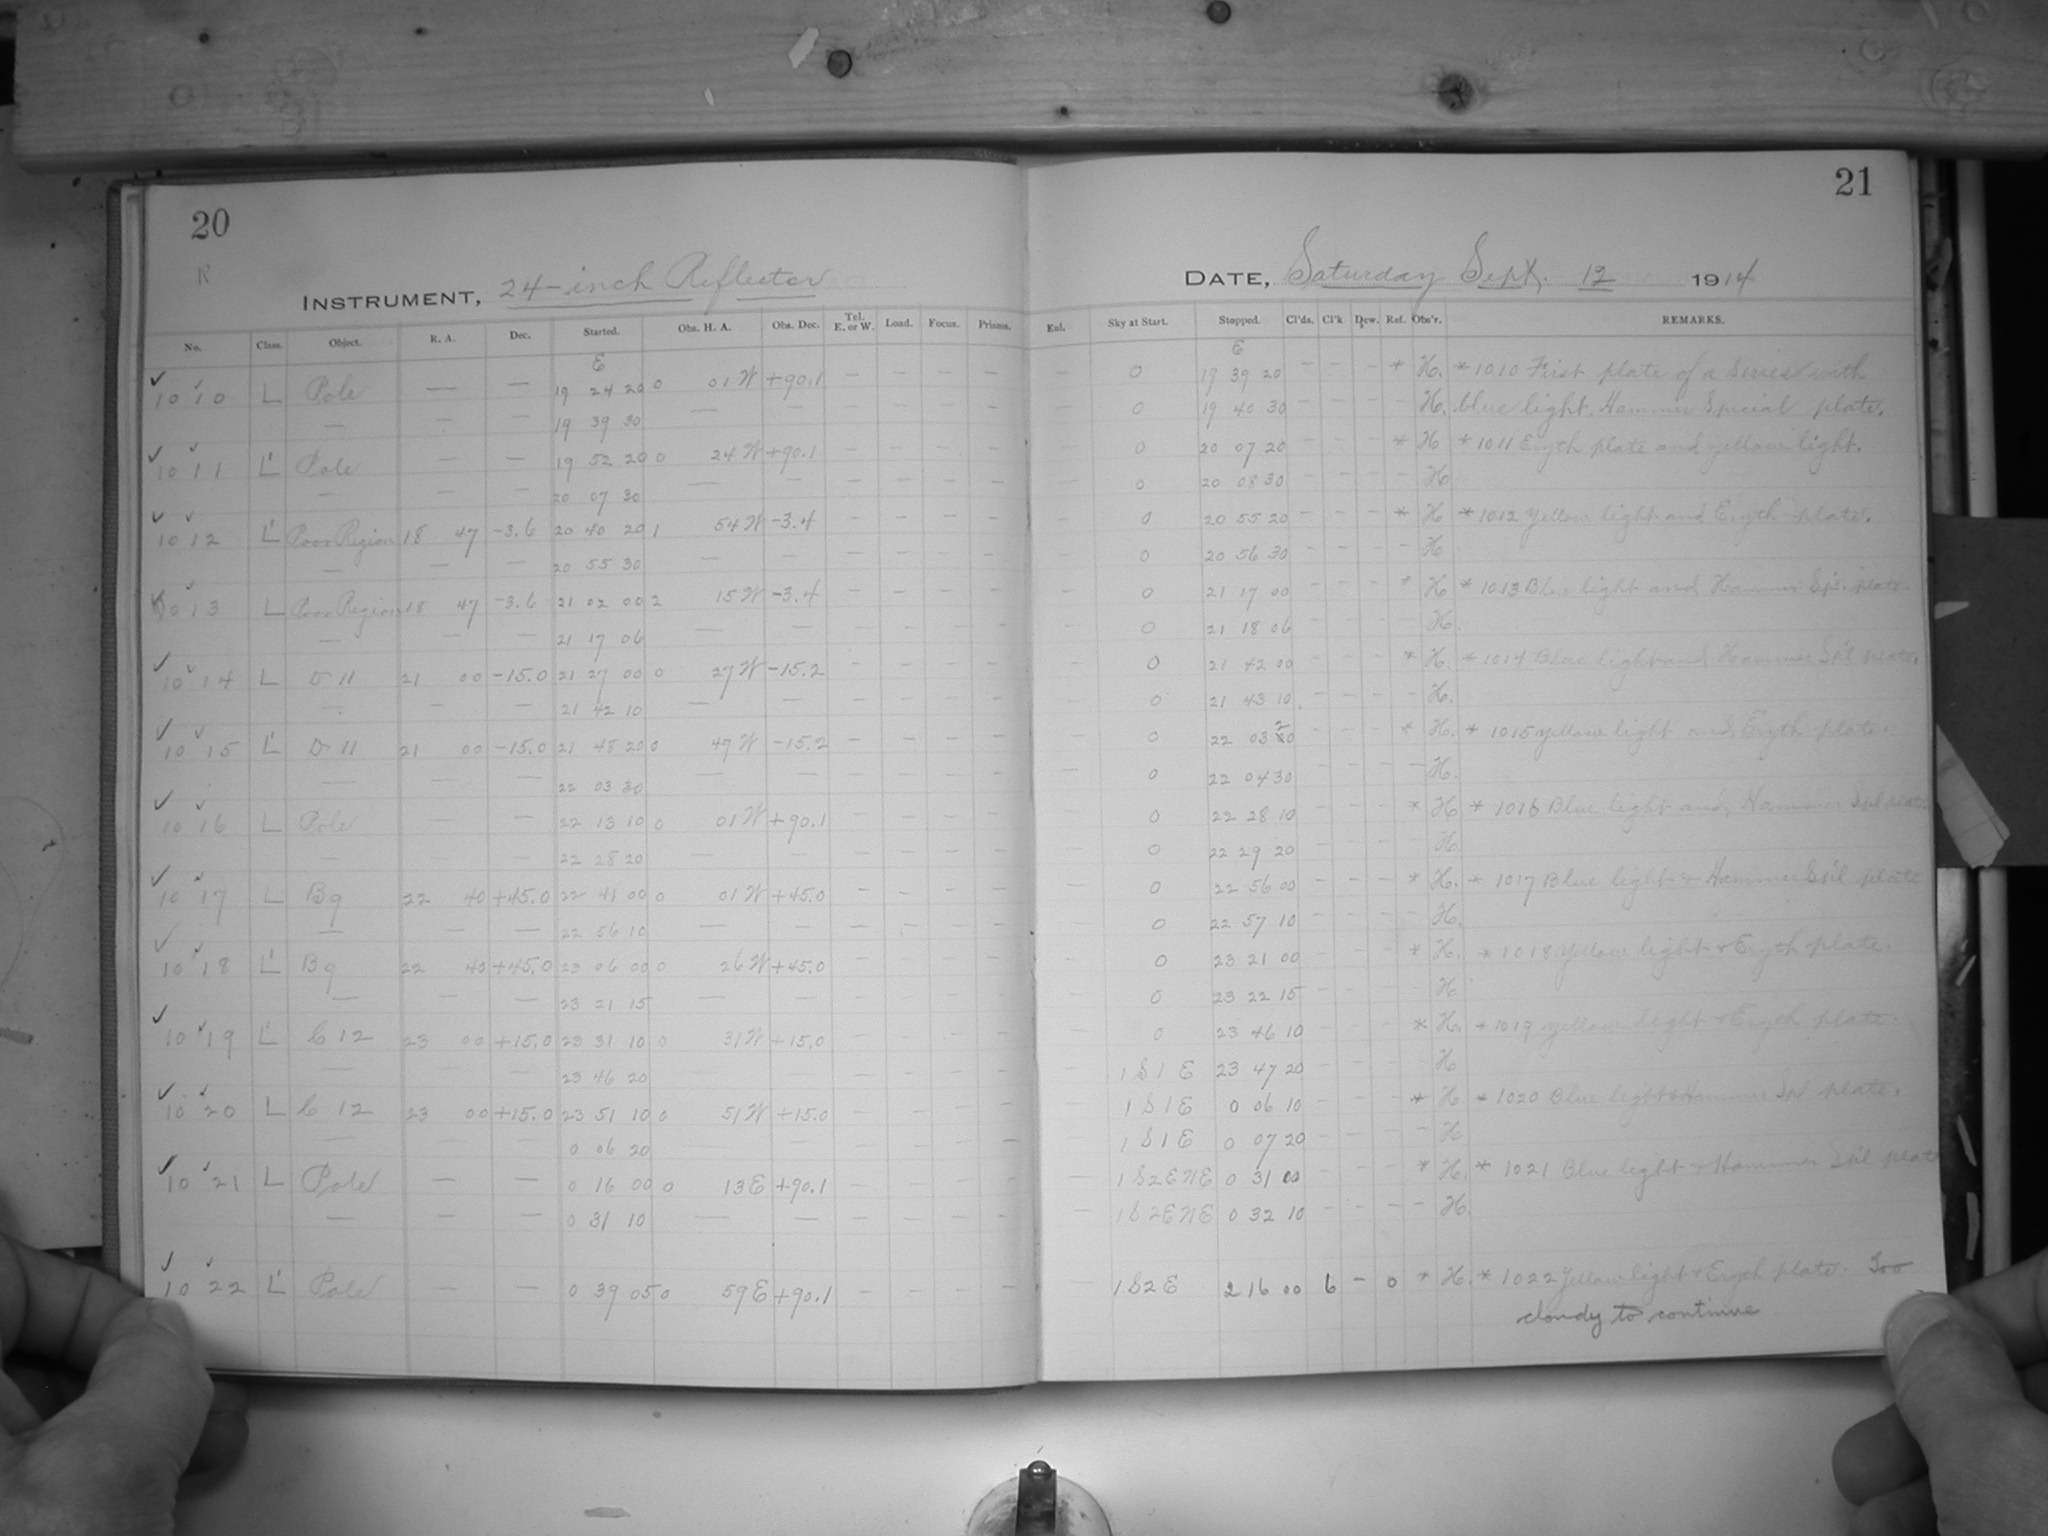 20
R
INSTRUMENT, 24-inch Reflector
No. Class. Object. R. A. Dec. Started. Obs. H. A. Obs. Dec. Tel. E. or W. Load. Focus. Prisms.
E
10 10 L Pole — — 19 24 20 0 01 W +90.1 — — — —
— — — 19 39 30 — — — — — —
10 11 L' Pole — — 19 52 20 0 24 W +90.1 — — — —
— — — 20 07 30 — — — — — —
10 12 L' Poor Region 18 47 -3.6 20 40 20 1 54 W -3.4 — — — —
— — — 20 55 30 — — — — — —
10 13 L Poor Region 18 47 -3.6 21 02 00 2 15 W -3.4 — — — —
— — — 21 17 06 — — — — — —
10 14 L D 11 21 00 -15.0 21 27 00 0 27 W -15.2 — — — —
— — — 21 42 10 — — — — — —
10 15 L' D 11 21 00 -15.0 21 48 20 0 49 W -15.2 — — — —
— — — 22 03 30 — — — — — —
10 16 L Pole — — 22 13 10 0 01 W +90.1 — — — —
— — — 22 28 20 — — — — — —
10 17 L B9 22 40 +45.0 22 41 00 0 01 W +45.0 — — — —
— — — 22 56 10 — — — — — —
10 18 L' B9 22 40 +45.0 23 06 00 0 26 W +45.0 — — — —
— — — 23 21 15 — — — — — —
10 19 L' C 12 23 00 +15.0 23 31 10 0 31 W +15.0 — — — —
— — — 23 46 20 — — — — — —
10 20 L C 12 23 00 +15.0 23 51 10 0 51 W +15.0 — — — —
— — — 0 06 20 — — — — — —
10 21 L Pole — — 0 16 00 0 13 E +90.1 — — — —
— — — 0 31 10 — — — — — —
10 22 L' Pole — — 0 39 05 0 59 E +90.1 — — — —
21
DATE, Saturday Sept. 12 1914
Eal. Sky at Start. Stopped. Cl'ds. Cl'k Dew. Ref. Obs'r. REMARKS.
E
— 0 19 39 20 — — — * H. * 1010 First plate of a Series with
— 0 19 40 30 — — — H. blue light. Hammer Special plate.
— 0 20 07 20 — — — * H * 1011 Eryth plate and yellow light.
— 0 20 08 30 — — — H
— 0 20 55 20 — — — * H * 1012 Yellow light and Eryth plate.
— 0 20 56 30 — — — — H
— 0 21 17 00 — — — * H * 1013 Blue light and Hammer Sp'l. plate.
— 0 21 18 06 — — — — H.
— 0 21 42 00 — — — * H. * 1014 Blue light and Hammer Sp'l plate.
— 0 21 43 10 — — — — H.
— 0 22 03 20 — — — * H. * 1015 yellow light and Eryth plate.
— 0 22 04 30 — — — — H.
— 0 22 28 10 — — — * H * 1016 Blue light and Hammer Spl plate
— 0 22 29 20 — — — — H.
— 0 22 56 00 — — — * H. * 1017 Blue light + Hammer Sp'l plate
— 0 22 57 10 — — — — H.
— 0 23 21 00 — — — * H. * 1018 Yellow light + Eryth plate.
— 0 23 22 15 — — — — H
— 0 23 46 10 — — — * H. * 1019 yellow light + Eryth plate.
— 1 S 1 E 23 47 20 — — — — H
— 1 S 1 E 0 06 10 — — — * H * 1020 Blue light + Hammer Spl plate.
— 1 S 1 E 0 07 20 — — — — H
— 1 S 2 E N E 0 31 00 — — — * H. * 1021 Blue light + Hammer Sp'l plate
— 1 S 2 E N E 0 32 10 — — — — H.
— 1 S 2 E 2 16 00 6 — 0 * H. * 1022 Yellow light + Eryth plate. Too
cloudy to continue